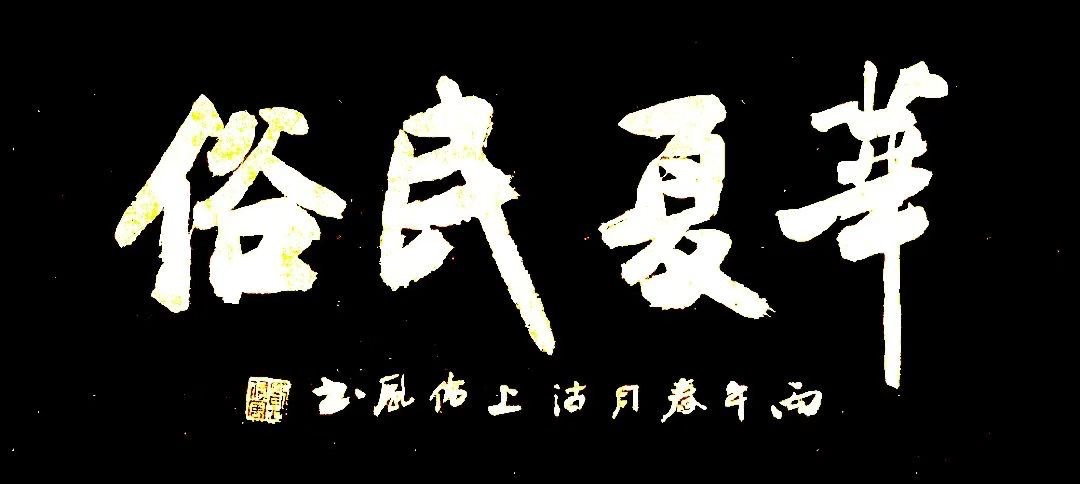 華夏民俗
丙午春月沽上佑風书